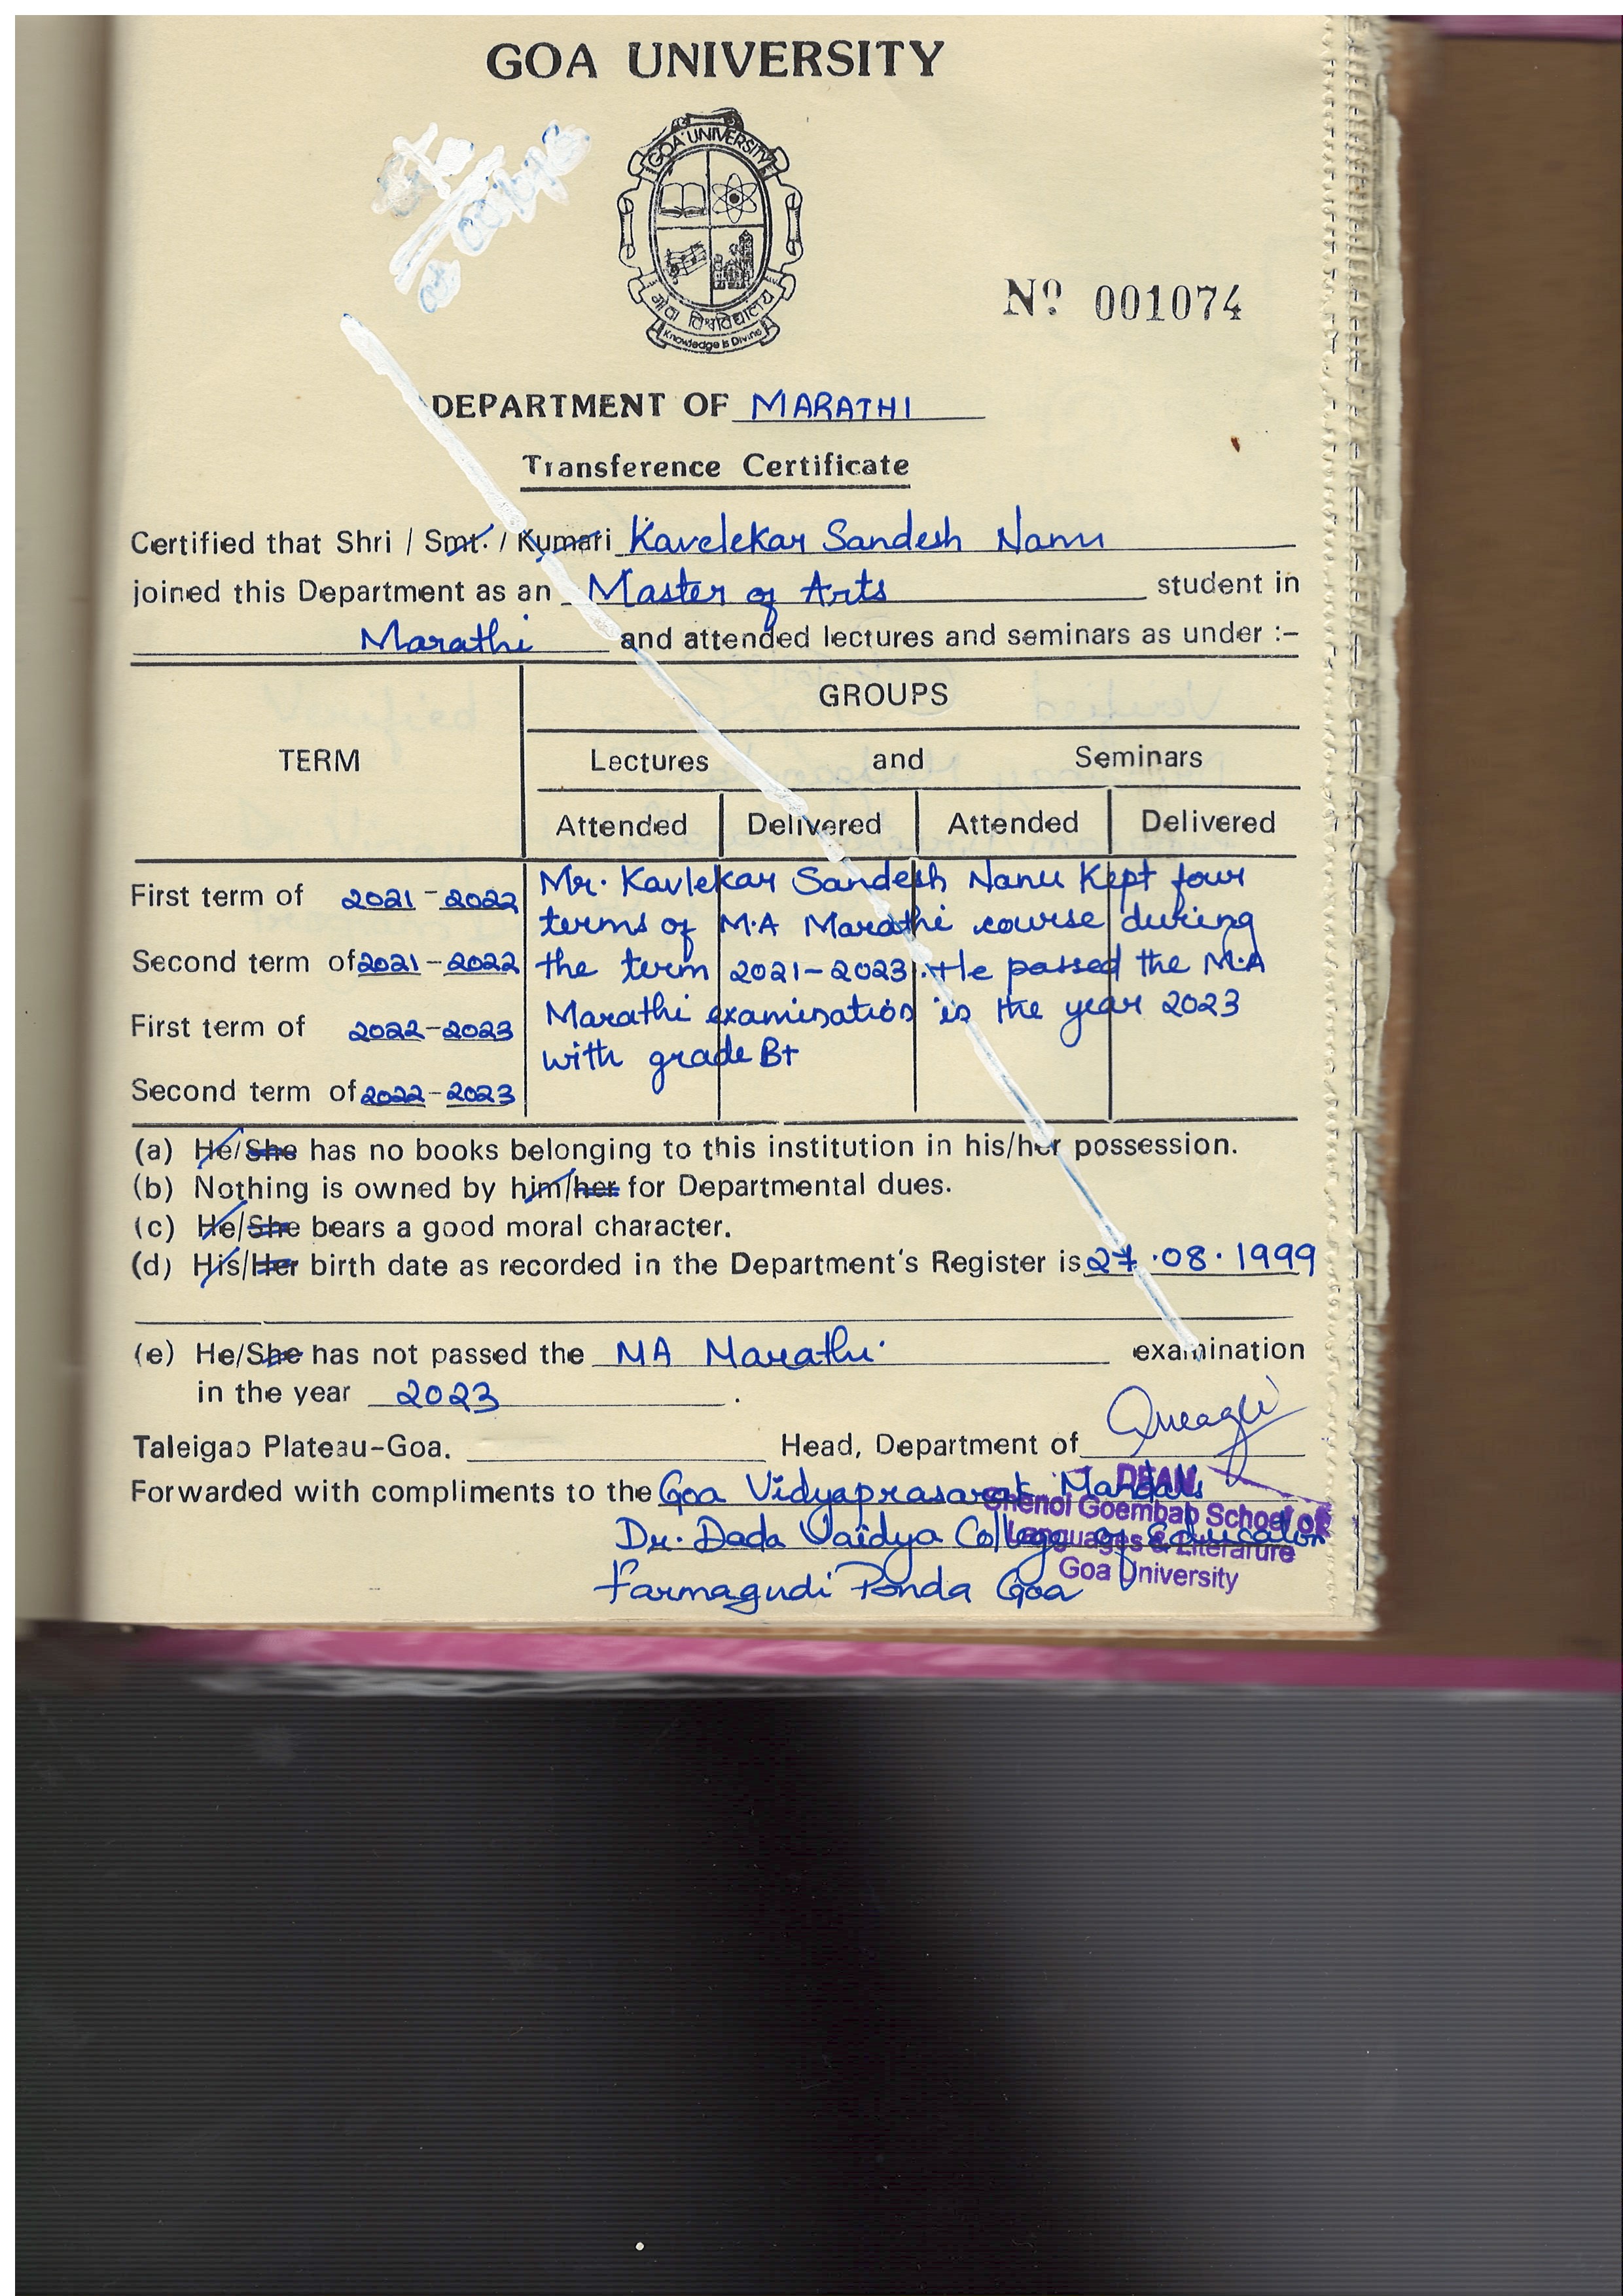 GOA UNIVERSITY
GOA UNIVERSITY
गोवा विश्वविद्यालय
Knowledge is Divine
Nº 001074
DEPARTMENT OF MARATHI
Transference Certificate
Certified that Shri / Smt. / Kumari Kavelekar Sandesh Nanu
joined this Department as an Master of Arts student in
Marathi and attended lectures and seminars as under :-
GROUPS
TERM Lectures and Seminars
Attended Delivered Attended Delivered
First term of 2021-2022
Second term of 2021-2022
First term of 2022-2023
Second term of 2022-2023
Mr. Kavlekar Sandesh Nanu Kept four
terms of M.A Marathi course during
the term 2021-2023. He passed the M.A
Marathi examination is the year 2023
with grade B+
(a) He/She has no books belonging to this institution in his/her possession.
(b) Nothing is owned by him/her for Departmental dues.
(c) He/She bears a good moral character.
(d) His/Her birth date as recorded in the Department's Register is 27.08.1999
(e) He/She has not passed the MA Marathi. examination
in the year 2023 .
Taleigao Plateau-Goa. Head, Department of
Forwarded with compliments to the Goa Vidyaprasarak Mandal's
Dr. Dada Vaidya College of Education
Farmagudi Ponda Goa
DEAN
Shenoi Goembab School of
Languages & Literature
Goa University